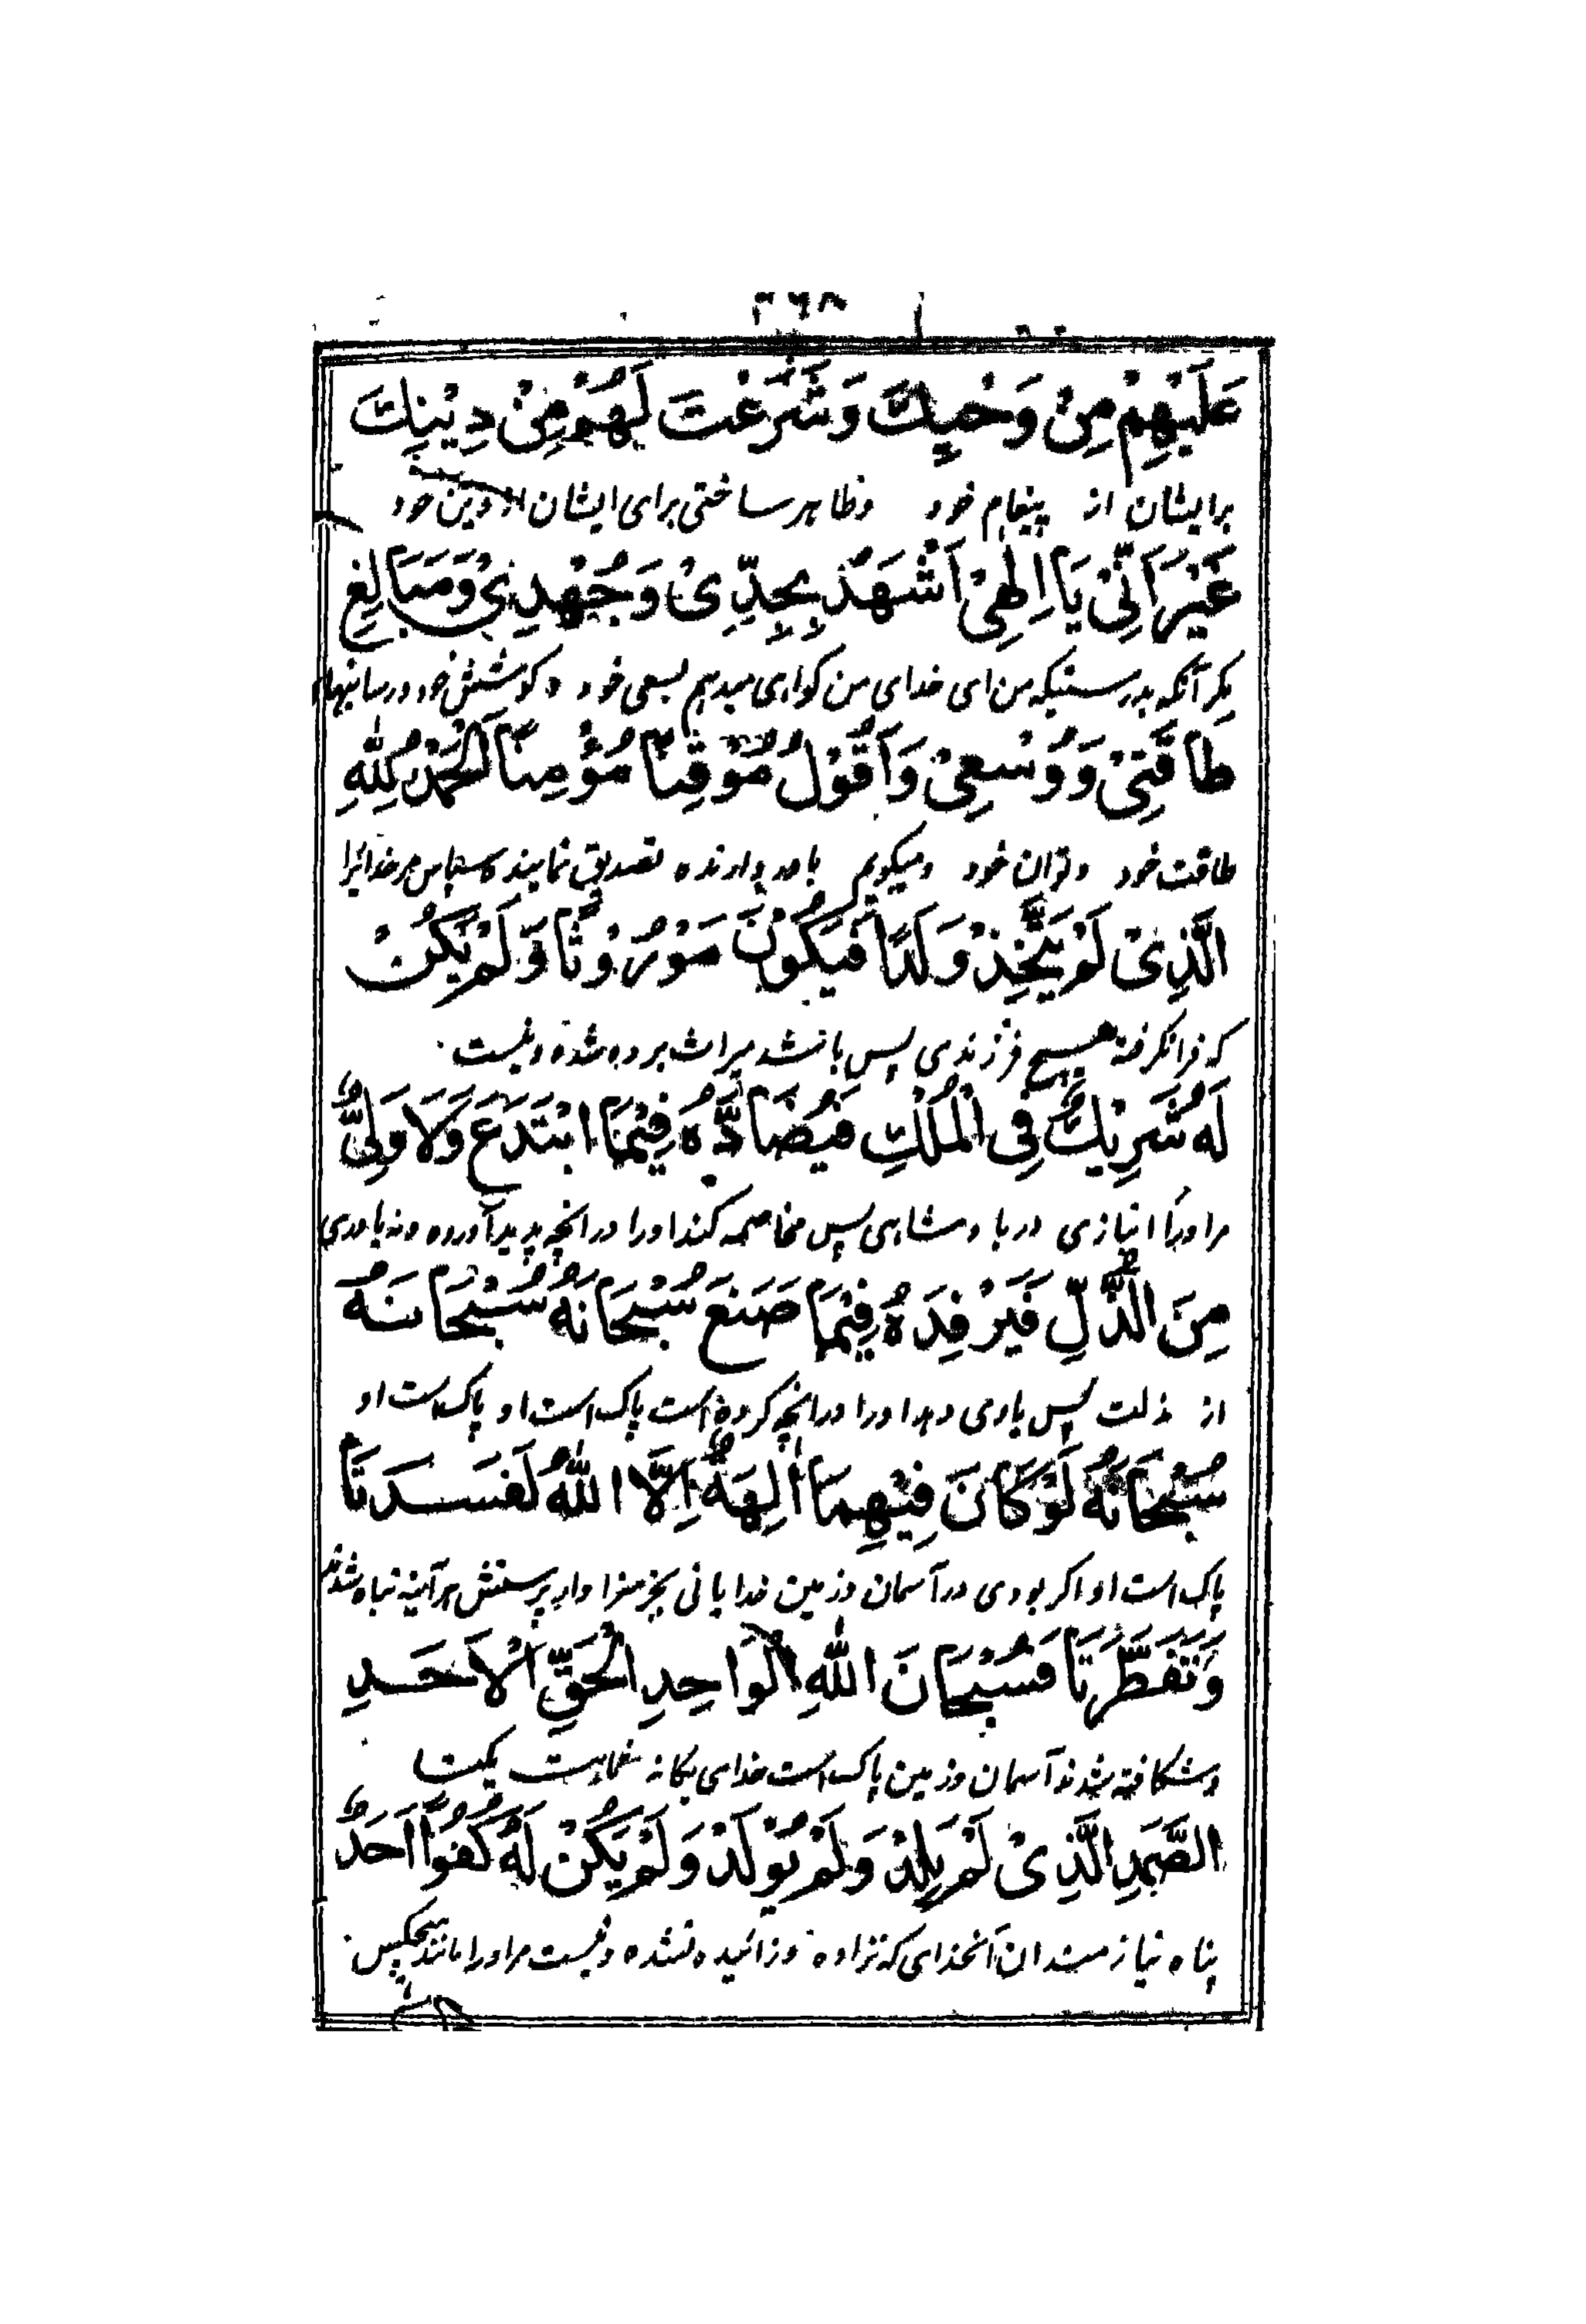 عَلَيْهِمْ مِنْ وَحْيِكَ وَشَرَعْتَ لَهُمْ مِنْ دِيْنِكَ
برایشان از پیغام خود وظاهر ساختی برای ایشان از دین خود
غَيْرَ اَنِّىْ يَا اِلٰهِىْ اَشْهَدُ بِجِدِّىْ وَجُهْدِىْ وَمَبَالِغِ
مگر آنکه بدرستیکه من ای خدای من گواهی میدهم بسعی خود و کوشش خود ورسانیهای
طَاقَتِىْ وَوُسْعِىْ وَاَقُوْلُ مُوْقِنًا مُؤْمِنًا اَلْحَمْدُ لِلّٰهِ
طاقت خود وتوان خود ومیگویم باور دارنده تصدیق نماینده سپاس مر خدایرا
الَّذِىْ لَمْ يَتَّخِذْ وَلَدًا فَيَكُوْنَ مَوْرُوْثًا وَّلَمْ يَكُنْ
که فرانگرفته هیچ فرزندی پس باشد میراث برده شده ونیست
لَهُ شَرِيْكٌ فِى الْمُلْكِ فَيُضَادَّهُ فِيْمَا ابْتَدَعَ وَلَا وَلِىٌّ
مر اورا انبازی در پادشاهی پس مخاصمه کند اورا در انچه پدید آورده ونه یاوری
مِنَ الذُّلِّ فَيَرْفِدَهُ فِيْمَا صَنَعَ سُبْحَانَهُ سُبْحَانَهُ
از مذلت پس یاری دهد اورا در انچه کرده است پاک است او پاک است او
سُبْحَانَهُ لَوْ كَانَ فِيْهِمَا اٰلِهَةٌ اِلَّا اللّٰهُ لَفَسَدَتَا
پاک است او اگر بودی در آسمان وزمین خدایانی بجز سزاوار پرستش هرآئینه تباه شدند
وَتَفَطَّرَتَا فَسُبْحَانَ اللّٰهِ الْوَاحِدِ الْحَقِّ الْاَحَدِ
وشکافته شدند آسمان وزمین پاک است خدای یگانه یکتا
الصَّمَدِ الَّذِىْ لَمْ يَلِدْ وَلَمْ يُوْلَدْ وَلَمْ يَكُنْ لَهُ كُفُوًا اَحَدٌ
پناه نیازمندان آنخدای که نزاده وزائیده نشده ونیست مر اورا مانند هیچکس